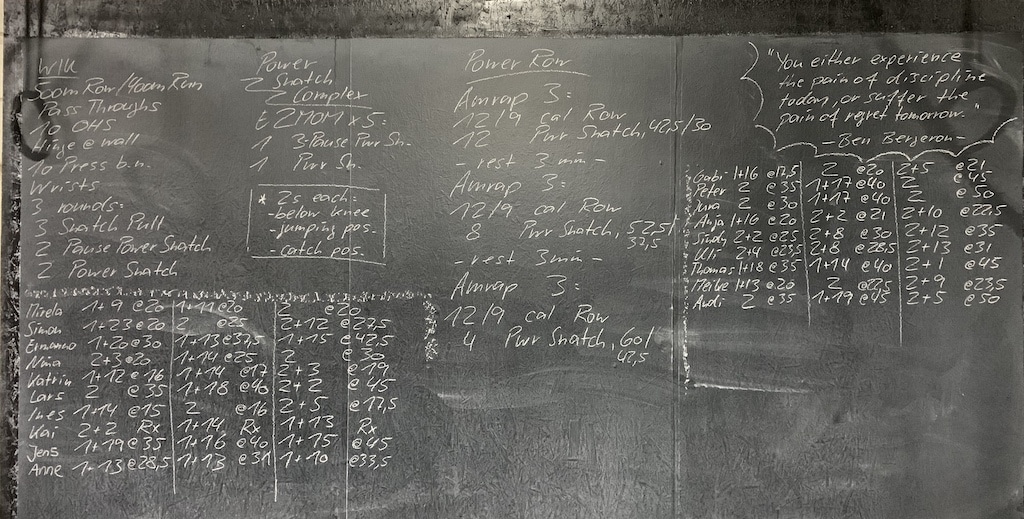 W/U
500m Row/400m Run
Pass Throughs
10 OHS
Hinge @ wall
10 Press b.n.
Wrists
3 rounds:
3 Snatch Pull
2 Pause Power Snatch
2 Power Snatch
Power
Snatch
Complex
E2MOM x 5:
1 3-Pause Pwr Sn.
1 Pwr Sn.
* 2s each:
-below knee
-jumping pos.
-catch pos.
Power Row
Amrap 3:
12/9 cal Row
12 Pwr Snatch, 42,5/30
- rest 3min -
Amrap 3:
12/9 cal Row
8 Pwr Snatch, 52,5/
37,5
- rest 3min -
Amrap 3:
12/9 cal Row
4 Pwr Snatch, 60/
42,5
"You either experience
the pain of discipline
today, or suffer the
pain of regret tomorrow."
- Ben Bergeron -
Gabi 1+16 @17,5 2 @20 2+5 @21
Peter 2 @35 1+17 @40 2 @45
2 @30 1+17 @40 2 @50
Anja 1+16 @20 2+2 @21 2+10 @22,5
Sindy 2+2 @25 2+8 @30 2+12 @35
Uli 2+4 @23,5 2+8 @28,5 2+13 @31
Thomas 1+18 @35 1+14 @40 2+1 @45
Meike 1+13 @20 2 @22,5 2+9 @23,5
Audi 2 @35 1+19 @45 2+5 @50
Mirela 1+9 @20 1+11 @20 2 @20
Simon 1+23 @20 2 @25 2+12 @27,5
Ermanno 1+20 @30 1+13 @37,5 1+15 @42,5
Nina 2+3 @20 1+14 @25 2 @30
Katrin 1+12 @16 1+14 @17 2+3 @19
Lars 2 @35 1+18 @40 2+2 @45
Ines 1+14 @15 2 @16 2+5 @17,5
Kai 2+2 Rx 1+14 Rx 1+13 Rx
Jens 1+19 @35 1+16 @40 1+15 @45
Anne 1+13 @28,5 1+13 @31 1+10 @33,5